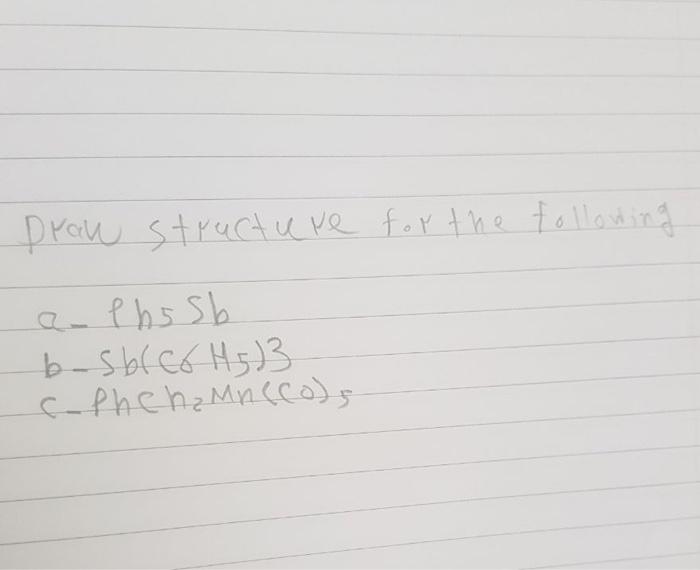 Draw structure for the following
a- Ph5Sb
b- Sb(C6H5)3
c- PhCh2Mn(CO)5